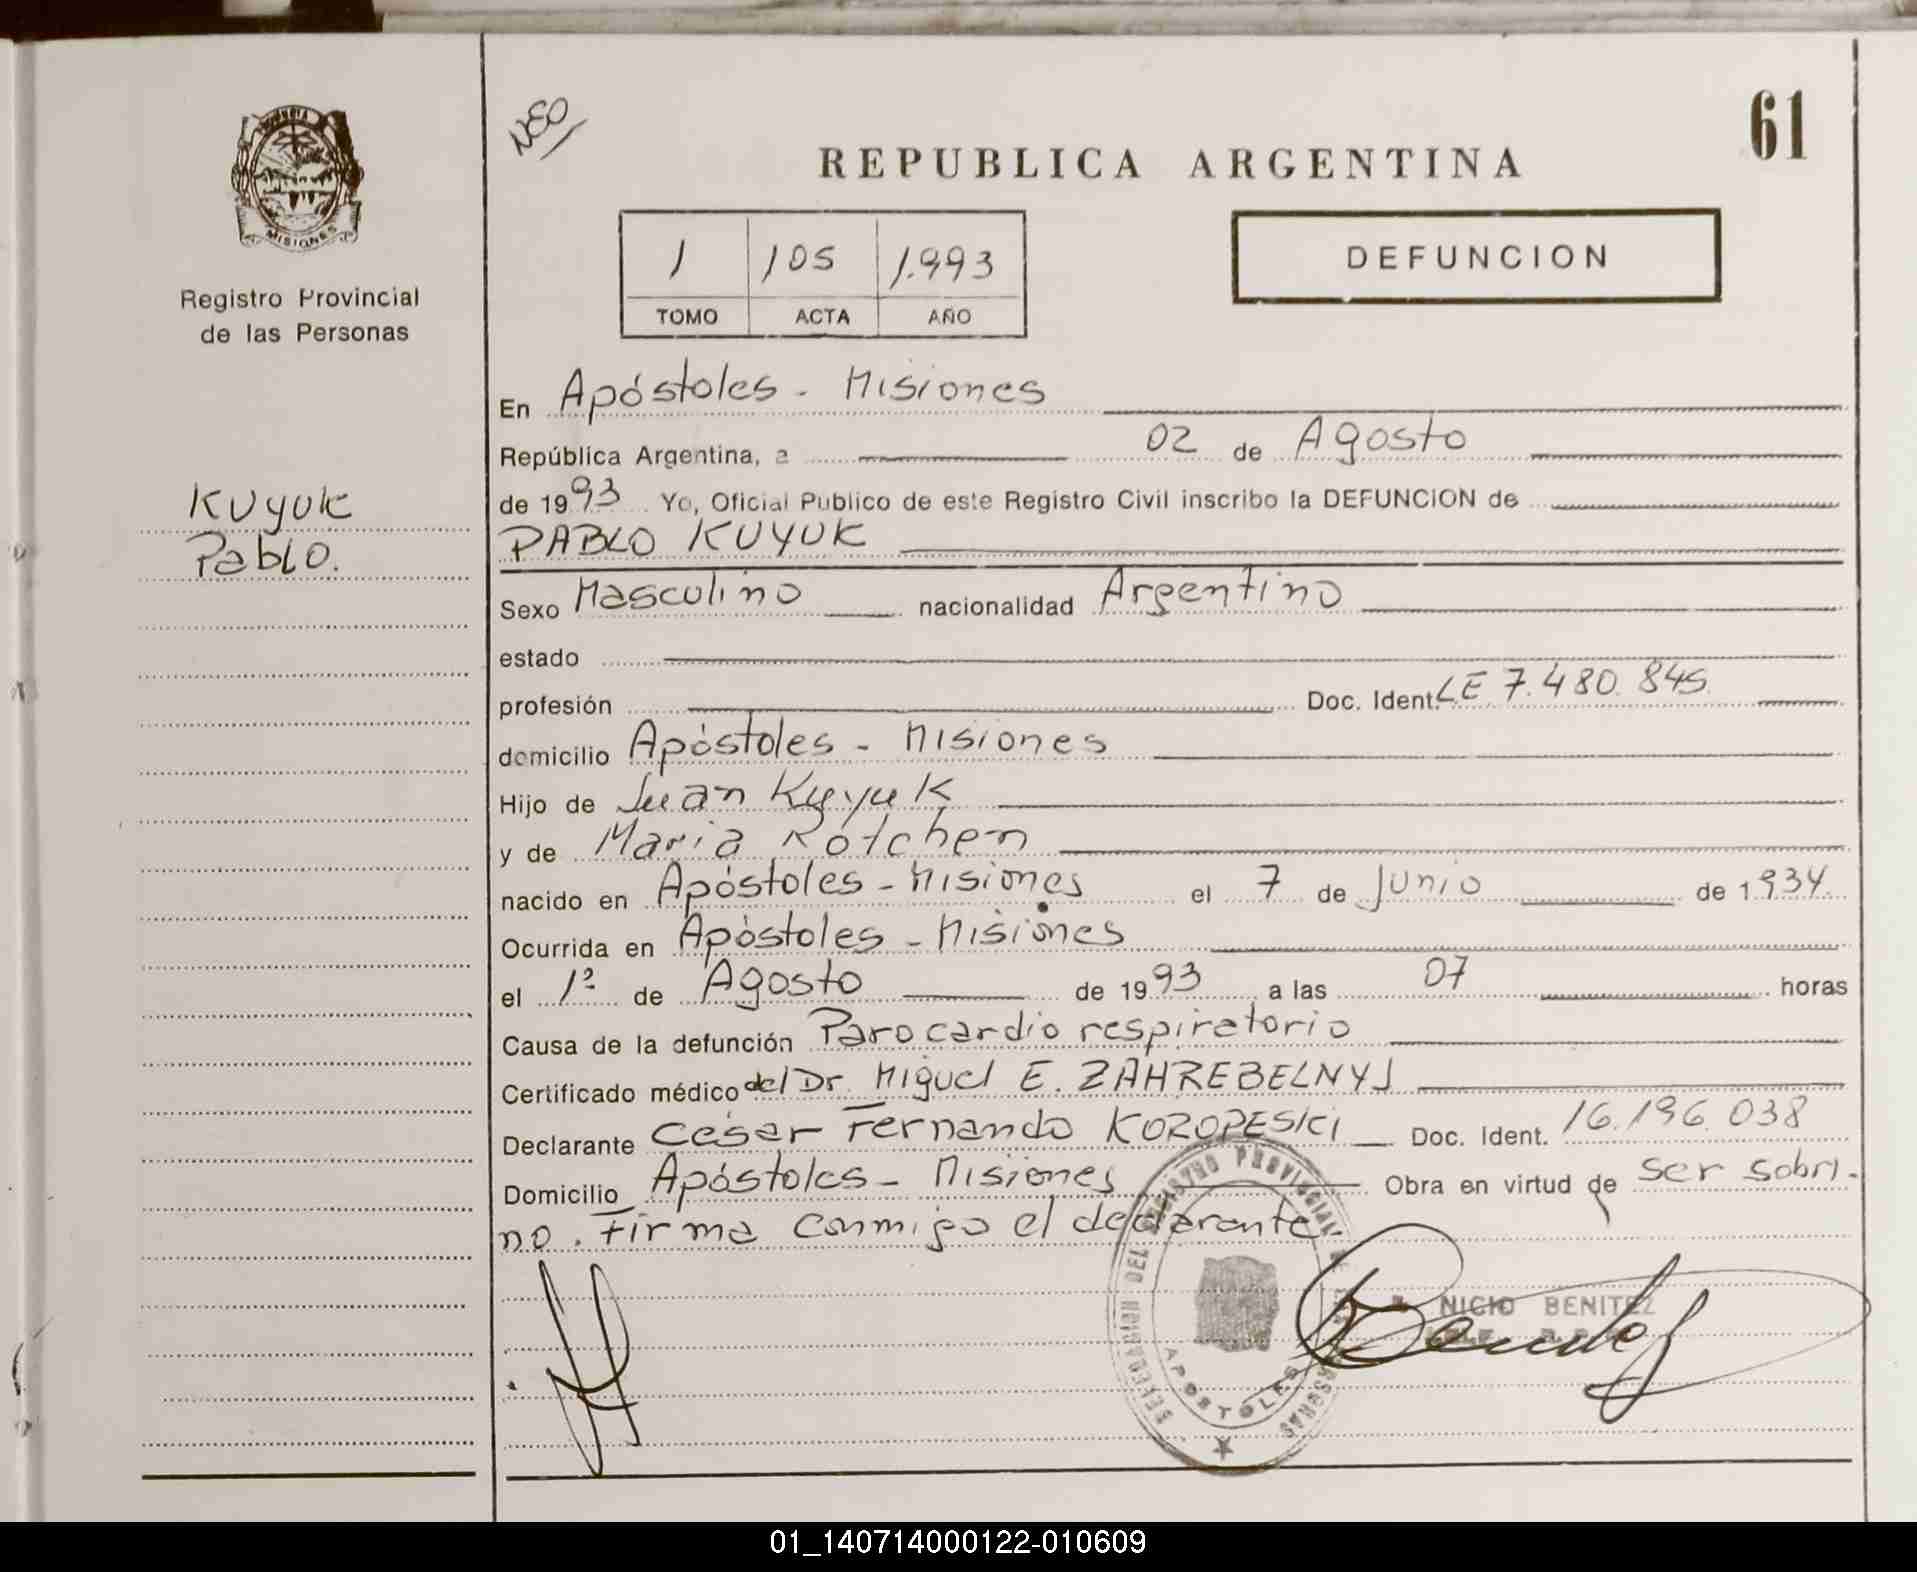 NEO
61
REPUBLICA ARGENTINA
PROVINCIA
MISIONES
Registro Provincial
de las Personas
1 105 1.993
TOMO ACTA AÑO
DEFUNCION
Kuyuk
Pablo.
En Apóstoles - Misiones
República Argentina, a 02 de Agosto
de 1993 Yo, Oficial Publico de este Registro Civil inscribo la DEFUNCION de
PABLO KUYUK
Sexo Masculino nacionalidad Argentino
estado
profesión Doc. Ident. LE 7.480.845
domicilio Apóstoles - Misiones
Hijo de Juan Kuyuk
y de Maria Rotchen
nacido en Apóstoles - Misiones el 7 de Junio de 1934.
Ocurrida en Apóstoles - Misiones
el 1º de Agosto de 1993 a las 07 horas
Causa de la defunción Paro cardio respiratorio
Certificado médico del Dr. Miguel E. ZAHREBELNYJ
Declarante César Fernando KOROPESKI Doc. Ident. 16.196.038
Domicilio Apóstoles - Misiones Obra en virtud de ser sobri-
no. Firma conmigo el declarante.
DELEGACION DEL REGISTRO PROVINCIAL DE LAS PERSONAS
APOSTOLES
NICIO BENITEZ
01_140714000122-010609